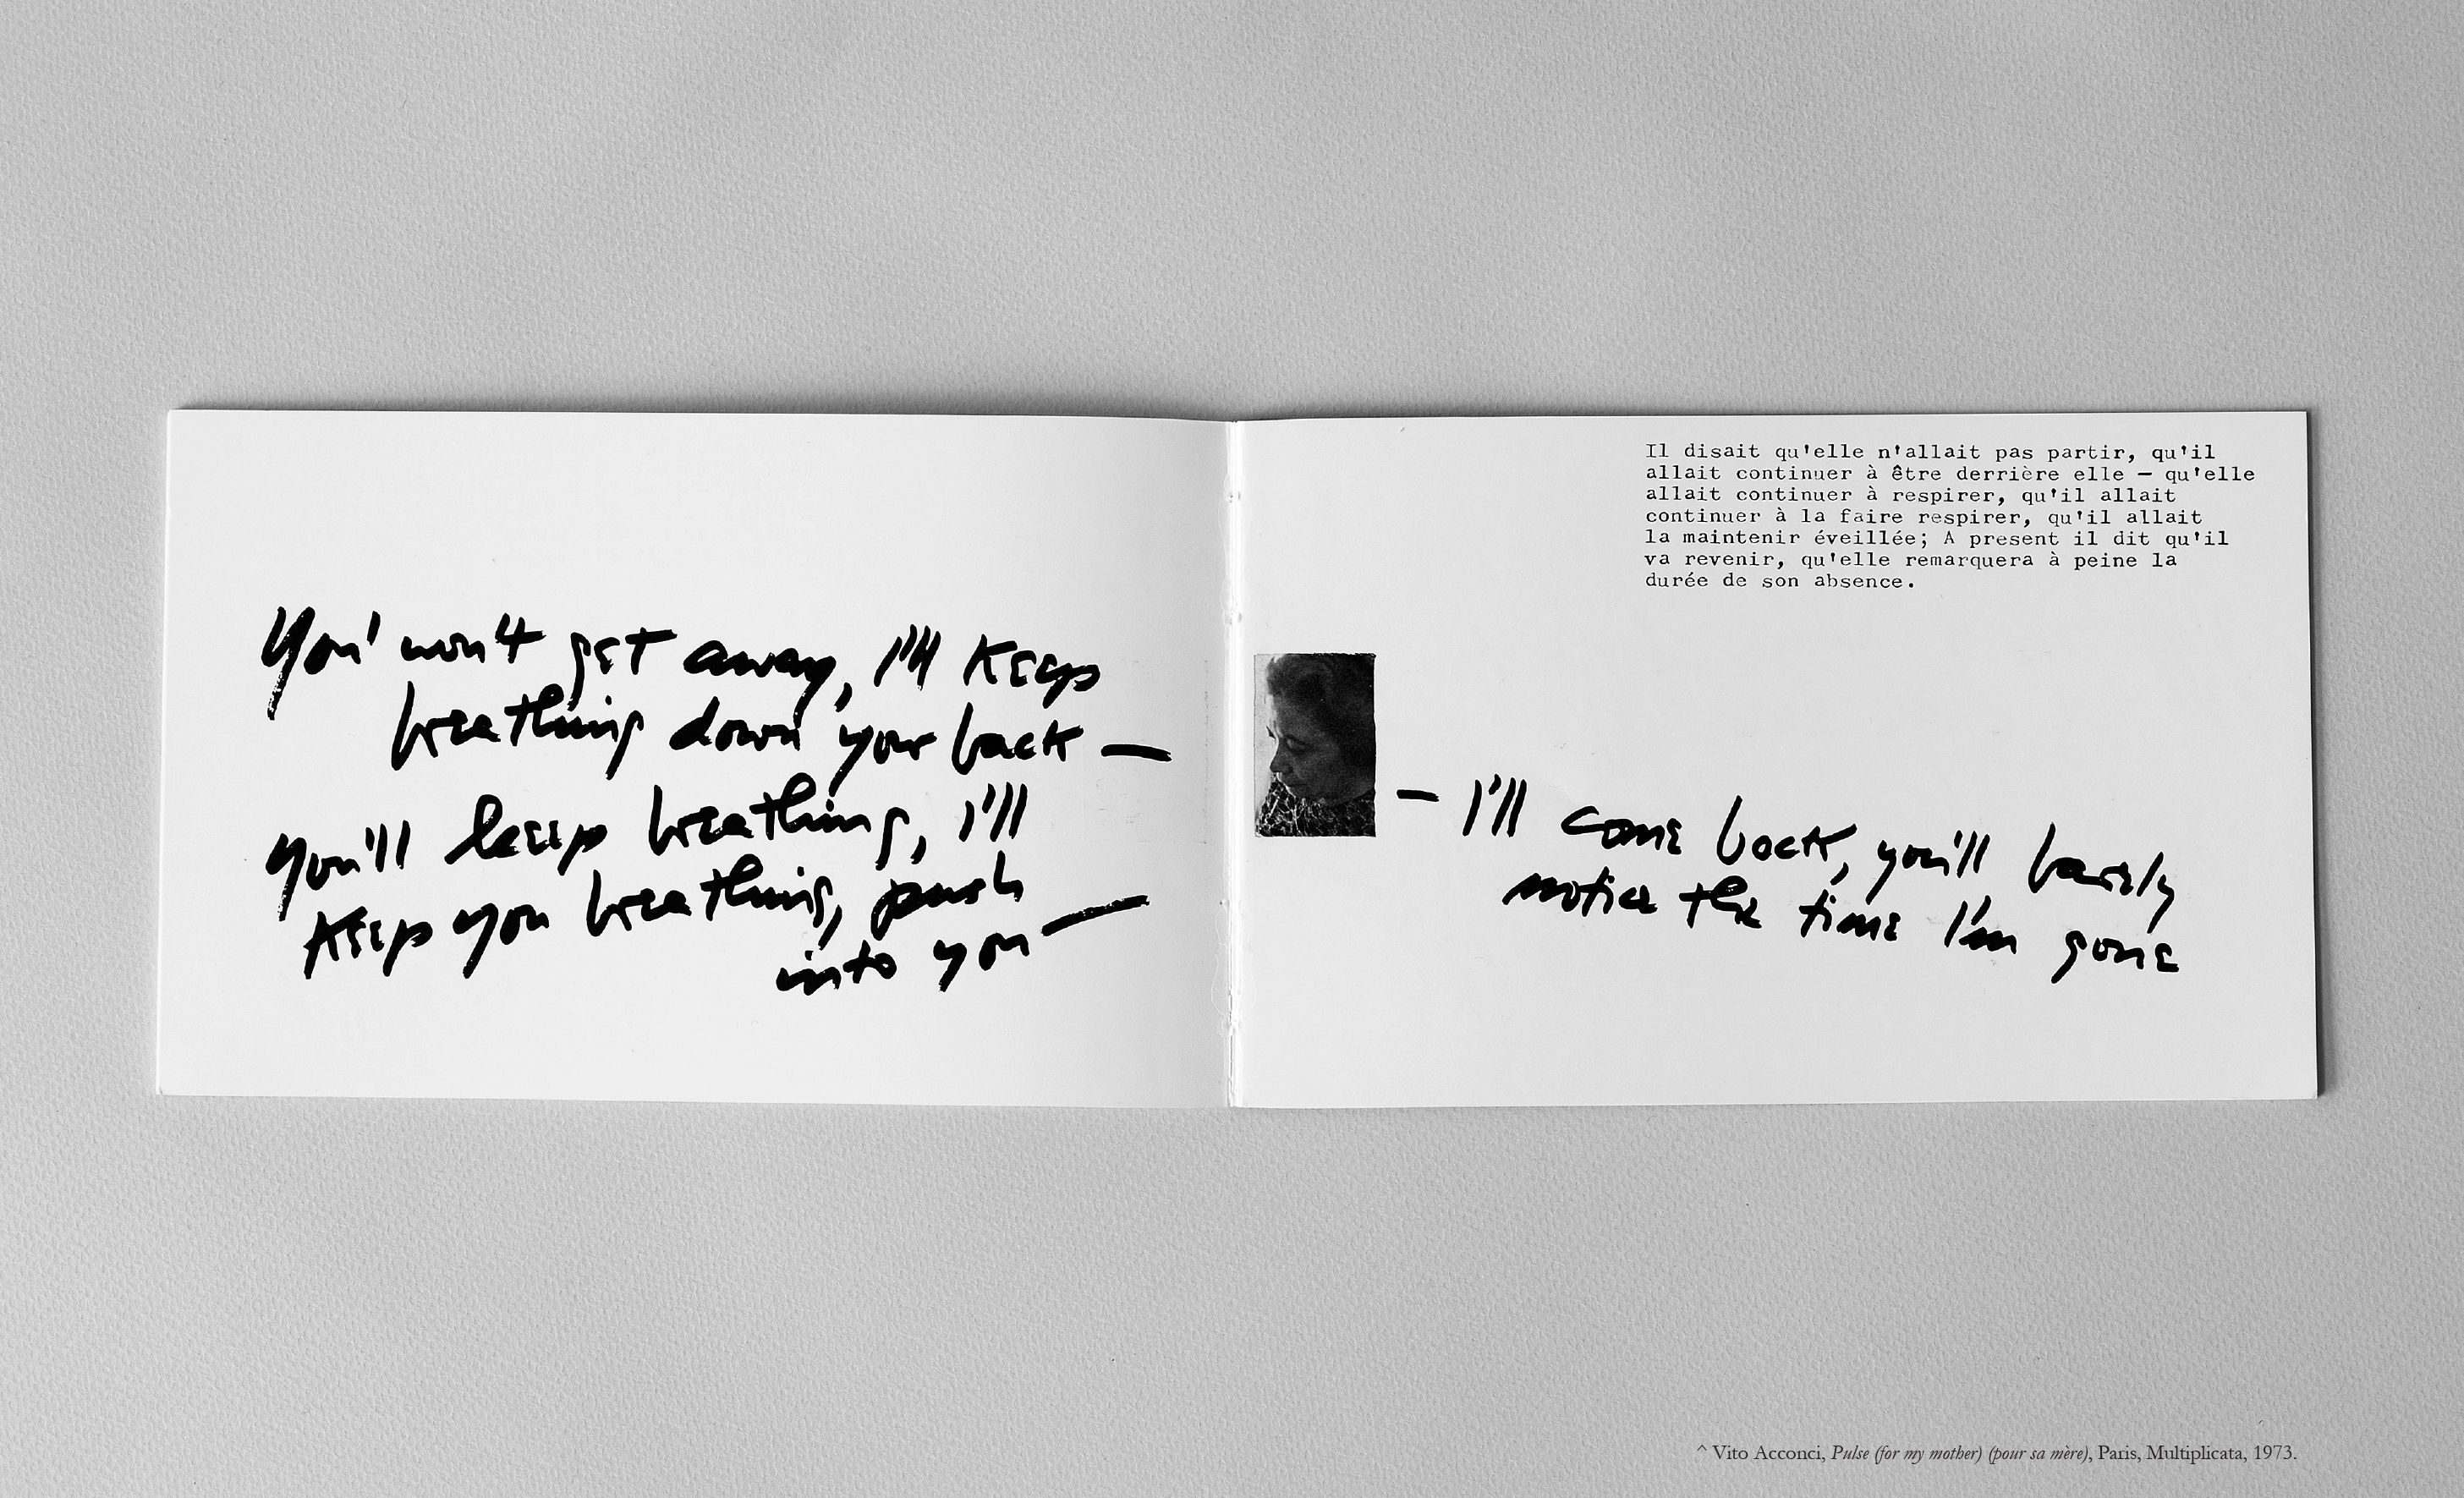 You' won't get away, I'll keep
breathing down your back —
You'll keep breathing, I'll
keep you breathing, push
into you —
Il disait qu'elle n'allait pas partir, qu'il
allait continuer à être derrière elle — qu'elle
allait continuer à respirer, qu'il allait
continuer à la faire respirer, qu'il allait
la maintenir éveillée; A present il dit qu'il
va revenir, qu'elle remarquera à peine la
durée de son absence.
— I'll come back, you'll barely
notice the time I'm gone
^ Vito Acconci, Pulse (for my mother) (pour sa mère), Paris, Multiplicata, 1973.